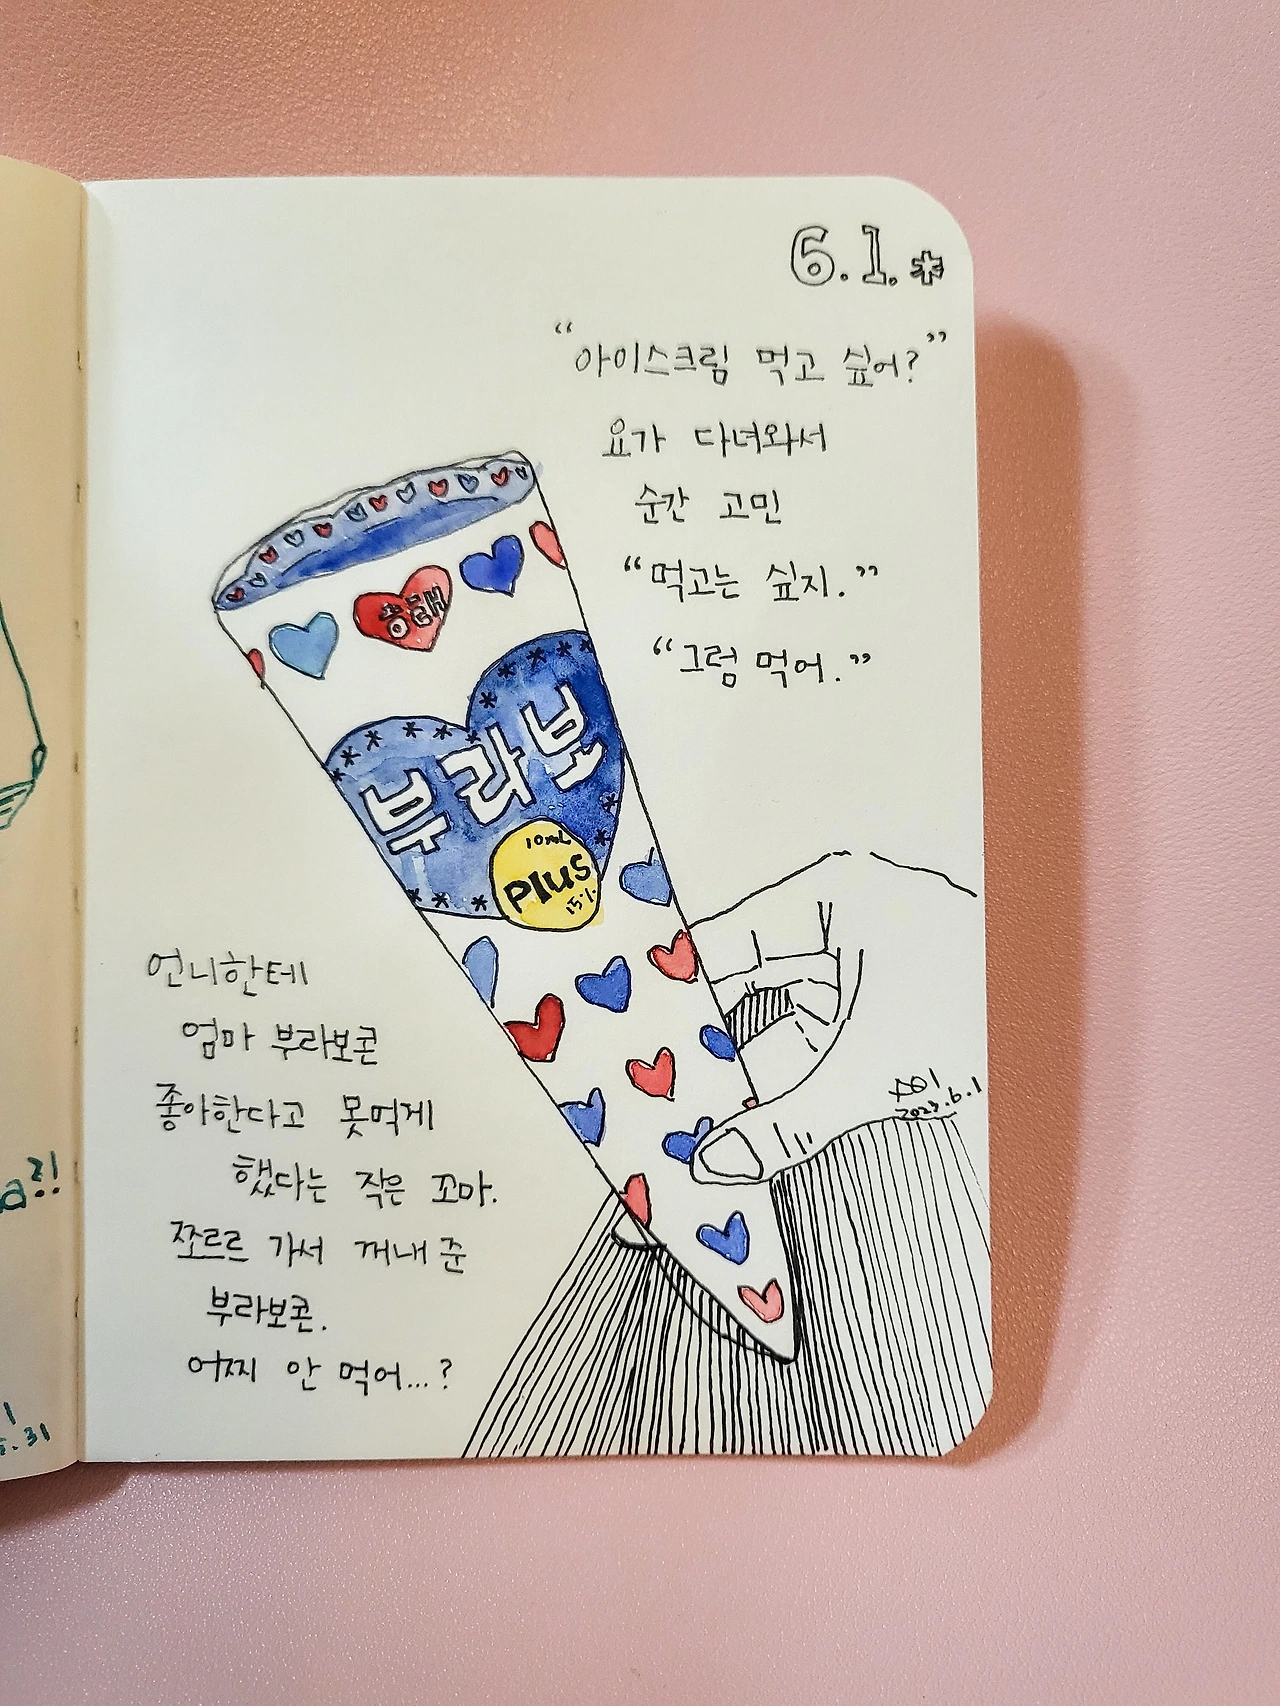 6.1.*
"아이스크림 먹고 싶어?"
요가 다녀와서
순간 고민
"먹고는 싶지."
"그럼 먹어."
해태
부라보
10mL
Plus
15%
언니한테
엄마 부라보콘
좋아한다고 못먹게
했다는 작은 꼬마.
쪼르르 가서 꺼내 준
부라보콘.
어찌 안 먹어...?
2023.6.1
a?!
5.31